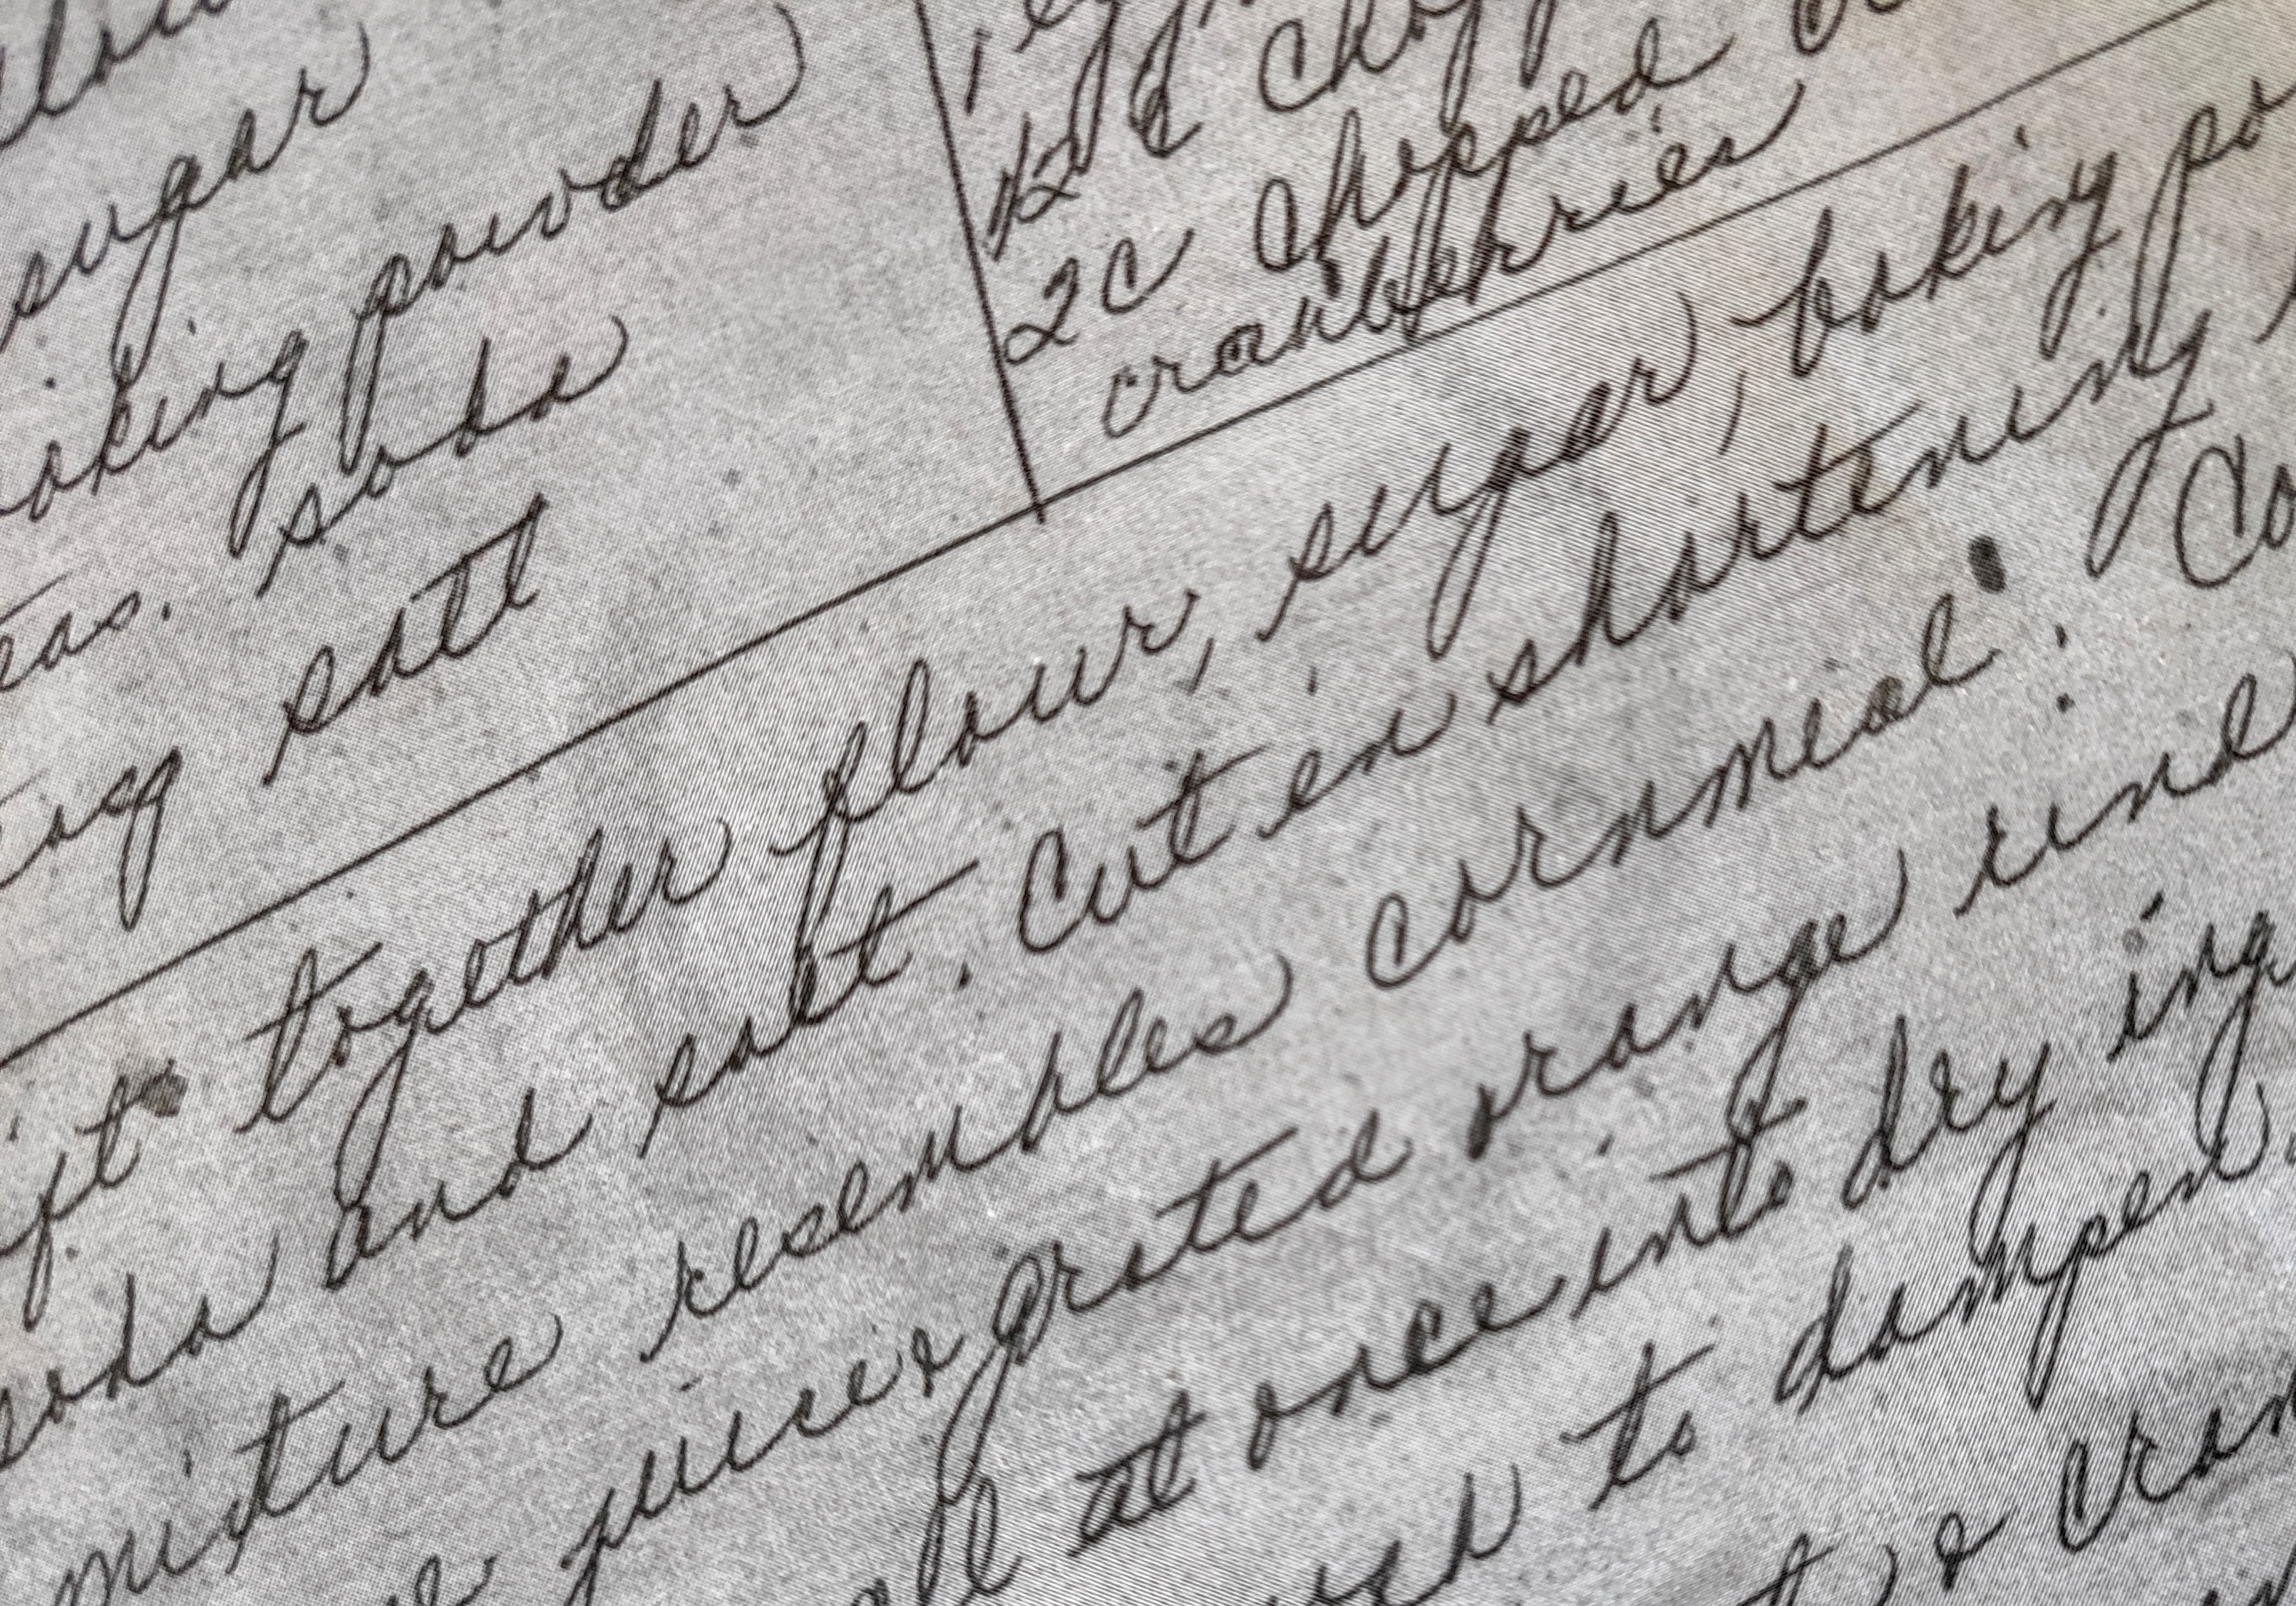 sugar
baking powder
teas. soda
salt
1 egg
1/2 c
2c chopped
cranberries
sift together flour, sugar, baking
soda and salt. Cut in shortening
mixture resembles cornmeal.
juice & grated orange rind
all at once into dry
to dampen
&